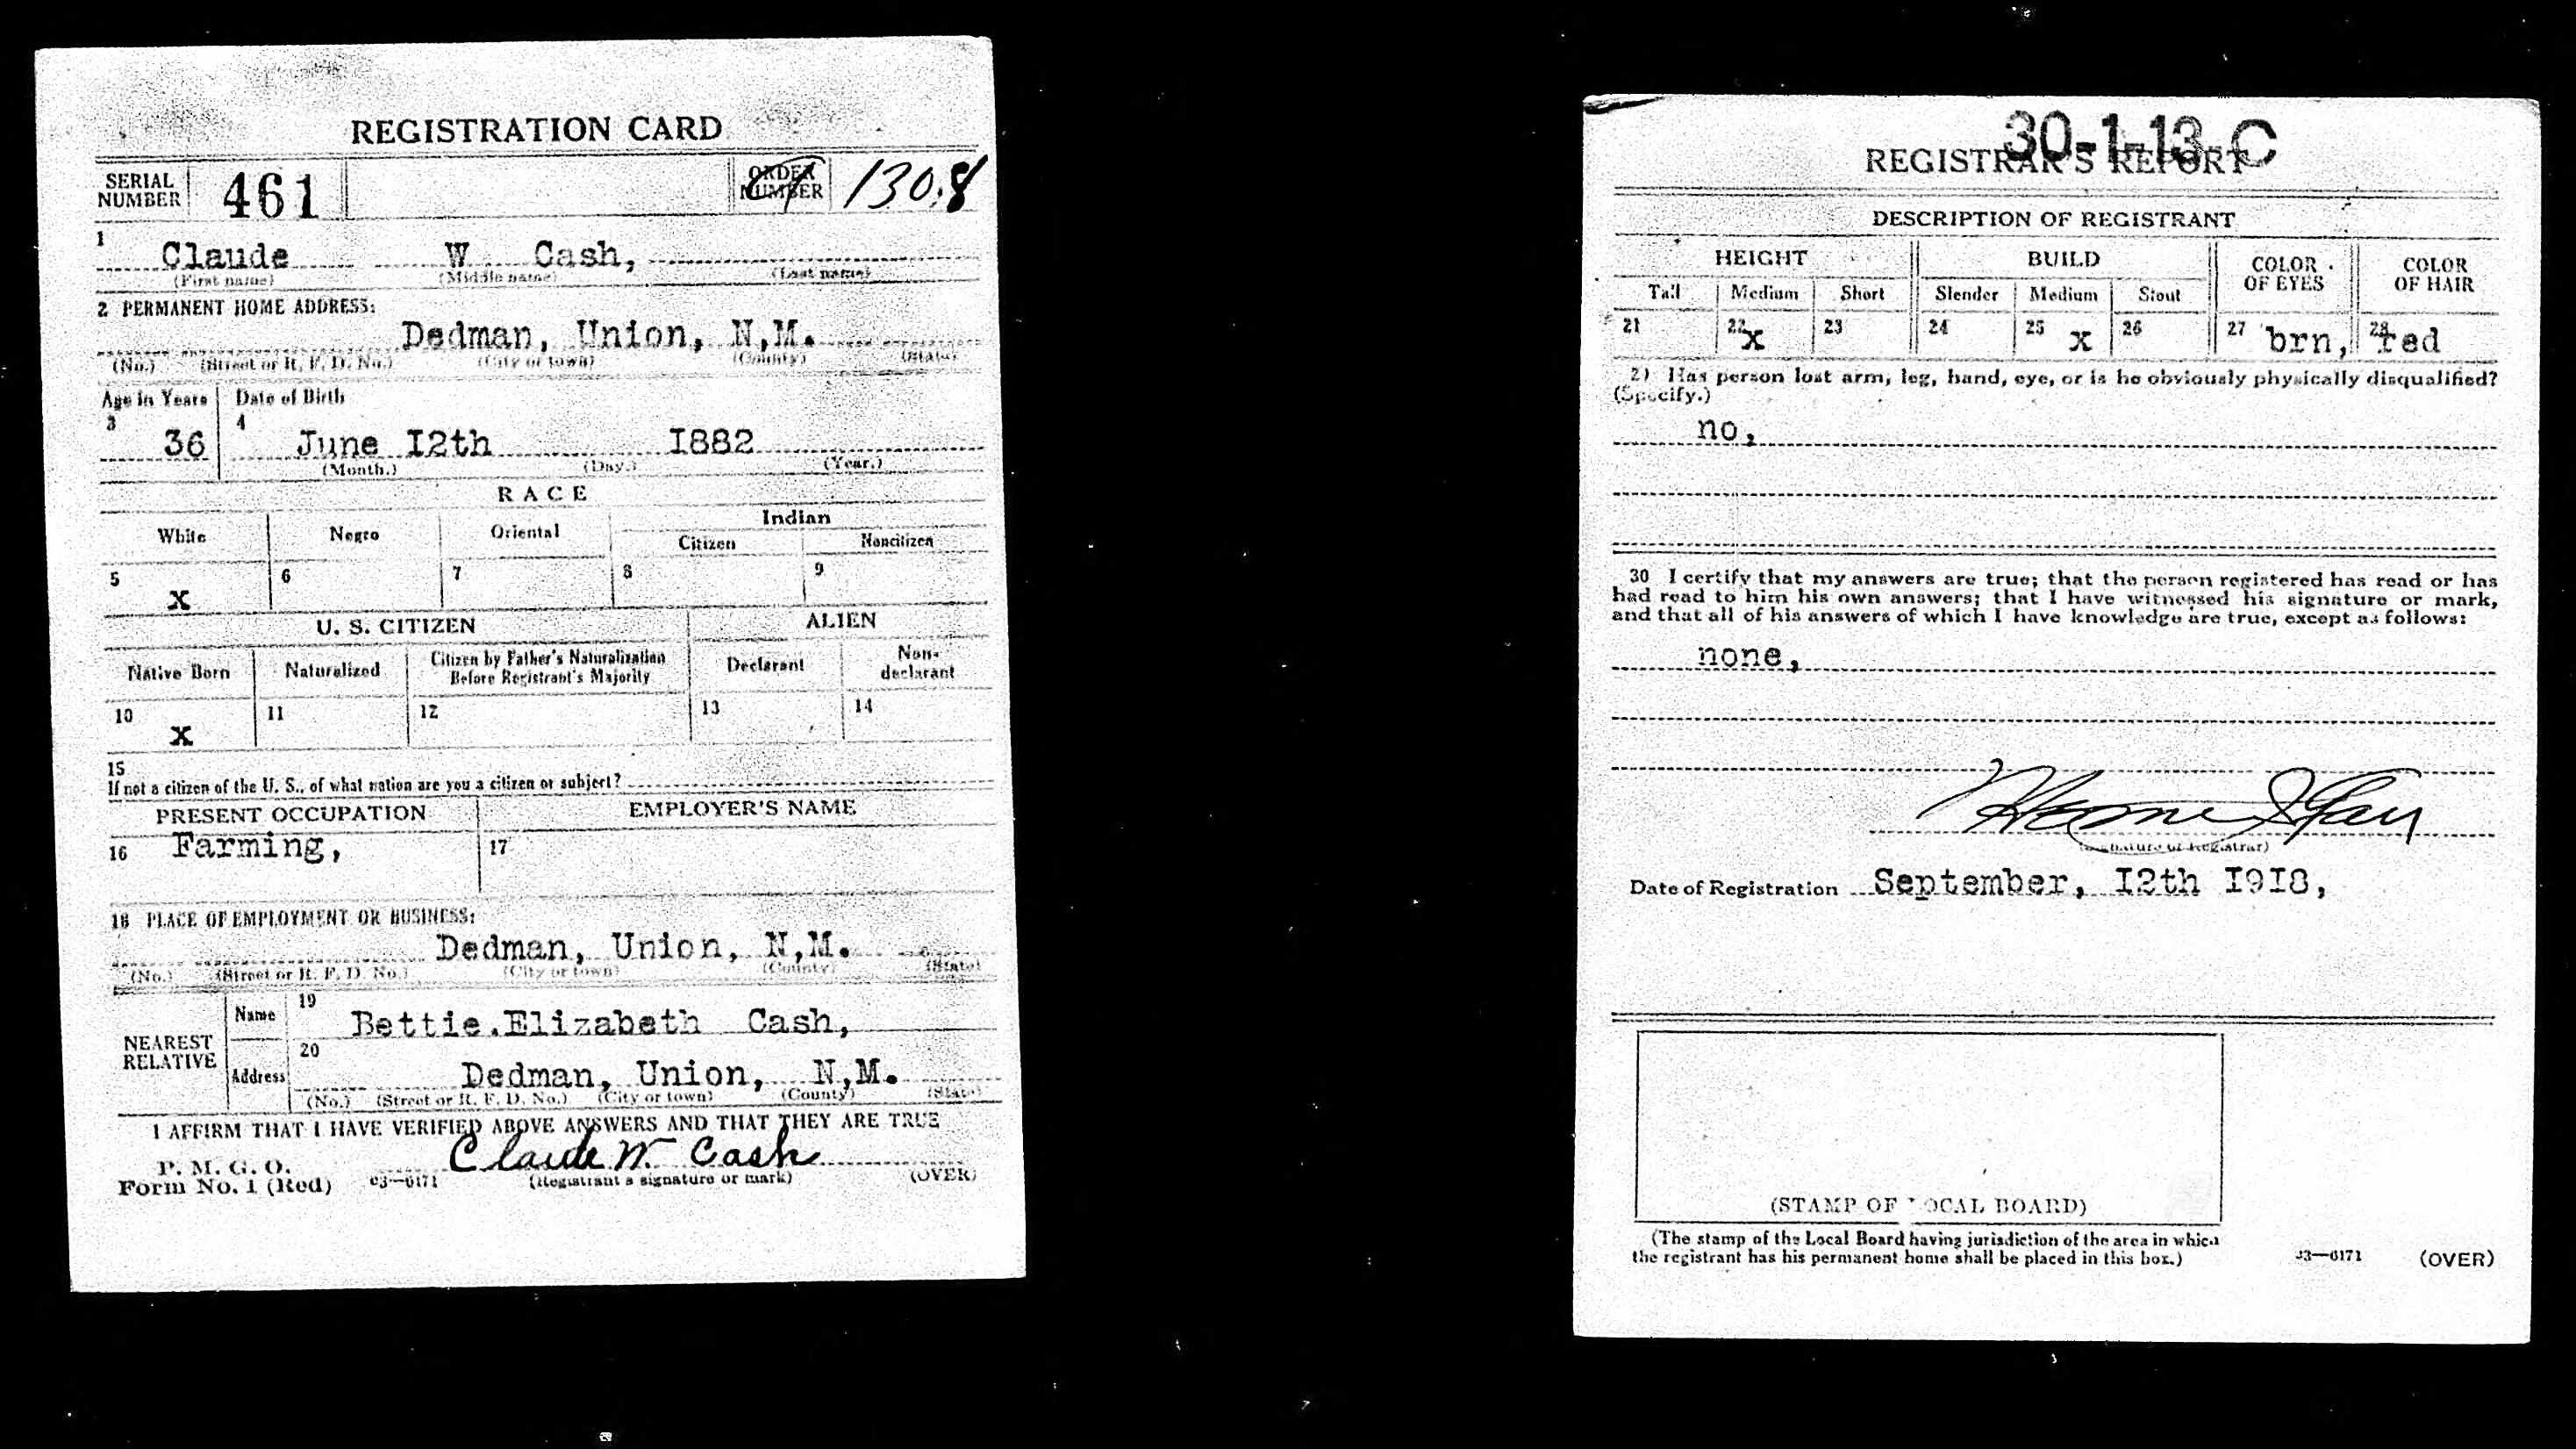 REGISTRATION CARD
SERIAL NUMBER 461 ORDER NUMBER 1308
1 Claude W Cash,
(First name) (Middle name) (Last name)
2 PERMANENT HOME ADDRESS:
Dedman, Union, N,M.
(No.) (Street or R. F. D. No.) (City or town) (County) (State)
Age in Years Date of Birth
3 36 4 June I2th I882
(Month.) (Day.) (Year.)
RACE
White Negro Oriental Indian
Citizen Noncitizen
5 x 6 7 8 9
U. S. CITIZEN ALIEN
Native Born Naturalized Citizen by Father's Naturalization Before Registrant's Majority Declarant Non-declarant
10 x 11 12 13 14
15
If not a citizen of the U. S., of what nation are you a citizen or subject?
PRESENT OCCUPATION EMPLOYER'S NAME
16 Farming, 17
18 PLACE OF EMPLOYMENT OR BUSINESS:
Dedman, Union, N,M.
(No.) (Street or R. F. D. No.) (City or town) (County) (State)
NEAREST RELATIVE
Name 19 Bettie.Elizabeth Cash,
Address 20 Dedman, Union, N,M.
(No.) (Street or R. F. D. No.) (City or town) (County) (State)
I AFFIRM THAT I HAVE VERIFIED ABOVE ANSWERS AND THAT THEY ARE TRUE
P. M. G. O.
Form No. 1 (Red) 03—6171 Claude W. Cash
(Registrant's signature or mark) (OVER)
30-1-13-C
REGISTRAR'S REPORT
DESCRIPTION OF REGISTRANT
HEIGHT BUILD COLOR OF EYES COLOR OF HAIR
Tall Medium Short Slender Medium Stout
21 22 x 23 24 25 x 26 27 brn, 28 red
29 Has person lost arm, leg, hand, eye, or is he obviously physically disqualified?
(Specify.)
no,
30 I certify that my answers are true; that the person registered has read or has
had read to him his own answers; that I have witnessed his signature or mark,
and that all of his answers of which I have knowledge are true, except as follows:
none,
(Signature of Registrar)
Date of Registration September, I2th I9I8,
(STAMP OF LOCAL BOARD)
(The stamp of the Local Board having jurisdiction of the area in which
the registrant has his permanent home shall be placed in this box.)
03—6171 (OVER)